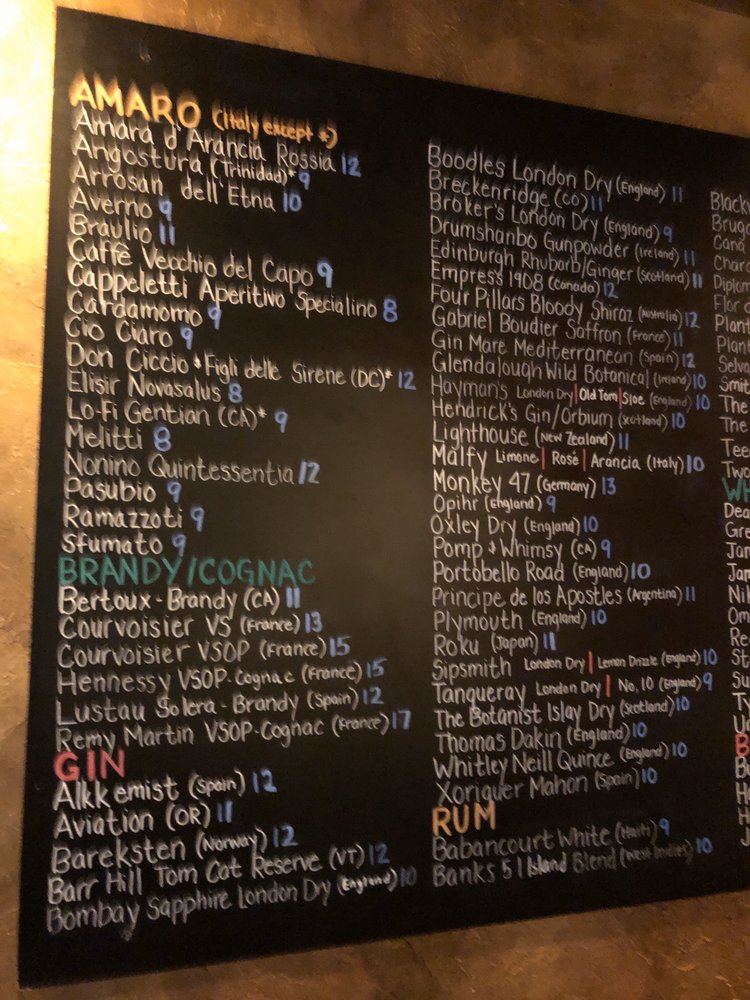 AMARO (Italy except *)
Amara d'Arancia Rossia 12
Angostura (Trinidad)* 9
Arrosan dell'Etna 10
Averno 9
Braulio 11
Caffè Vecchio del Capo 9
Cappeletti Aperitivo Specialino 8
Cardamomo 9
Cio Ciaro 9
Don Ciccio & Figli delle Sirene (DC)* 12
Elisir Novasalus 8
Lo-Fi Gentian (CA)* 9
Melitti 8
Nonino Quintessentia 12
Pasubio 9
Ramazzoti 9
Sfumato 9
BRANDY/COGNAC
Bertoux-Brandy (CA) 11
Courvoisier VS (France) 13
Courvoisier VSOP (France) 15
Hennessy VSOP-Cognac (France) 15
Lustau Solera-Brandy (Spain) 12
Remy Martin VSOP-Cognac (France) 17
GIN
Alkkemist (Spain) 12
Aviation (OR) 11
Bareksten (Norway) 12
Barr Hill Tom Cat Reserve (VT) 12
Bombay Sapphire London Dry (England) 10
Boodles London Dry (England) 11
Breckenridge (CO) 11
Broker's London Dry (England) 9
Drumshanbo Gunpowder (Ireland) 11
Edinburgh Rhubarb/Ginger (Scotland) 11
Empress 1908 (Canada) 12
Four Pillars Bloody Shiraz (Australia) 12
Gabriel Boudier Saffron (France) 11
Gin Mare Mediterranean (Spain) 12
Glendalough Wild Botanical (Ireland) 10
Hayman's London Dry | Old Tom | Sloe (England) 10
Hendrick's Gin/Orbium (Scotland) 10
Lighthouse (New Zealand) 11
Malfy Limone | Rosé | Arancia (Italy) 10
Monkey 47 (Germany) 13
Opihr (England) 9
Oxley Dry (England) 10
Pomp & Whimsy (CA) 9
Portobello Road (England) 10
Principe de los Apostles (Argentina) 11
Plymouth (England) 10
Roku (Japan) 11
Sipsmith London Dry | Lemon Drizzle (England) 10
Tanqueray London Dry | No. 10 (England) 9
The Botanist Islay Dry (Scotland) 10
Thomas Dakin (England) 10
Whitley Neill Quince (England) 10
Xoriguer Mahon (Spain) 10
RUM
Babancourt White (Haiti) 9
Banks 5 Island Blend (West Indies) 10